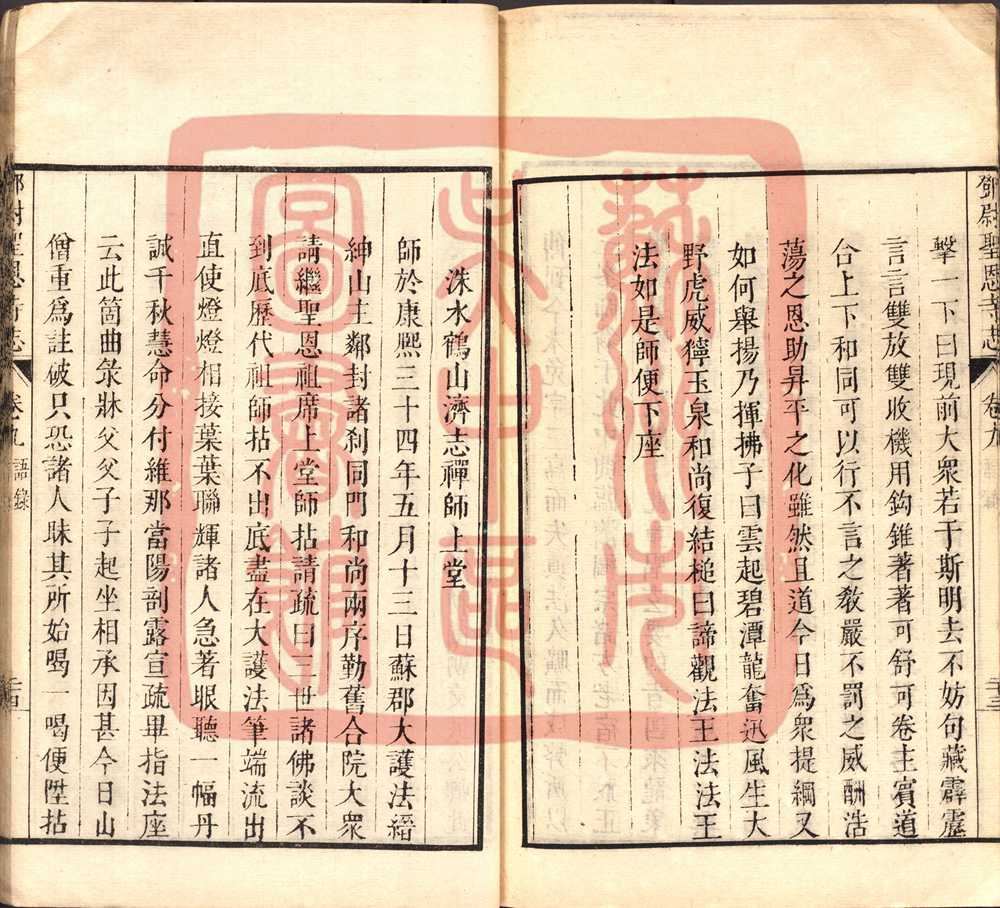 鄧尉聖恩寺志
卷九
二十三
擊一下曰現前大衆若于斯明去不妨句藏霹靂
言言雙放雙收機用鈎錐著著可舒可卷主賓道
合上下和同可以行不言之敎嚴不罰之威酬浩
蕩之恩助昇平之化雖然且道今日爲衆提綱又
如何舉揚乃揮拂子曰雲起碧潭龍奮迅風生大
野虎威獰玉泉和尚復結槌曰諦觀法王法法王
法如是師便下座
洙水鶴山濟志禪師上堂
師於康熙三十四年五月十三日蘇郡大護法縉
紳山主鄰封諸刹同門和尚兩序勤舊合院大衆
請繼聖恩祖席上堂師拈請疏曰三世諸佛談不
到底歷代祖師拈不出底盡在大護法筆端流出
直使燈燈相接葉葉聯輝諸人急著眼聽一幅丹
誠千秋慧命分付維那當陽剖露宣疏畢指法座
云此箇曲彔牀父父子子起坐相承因甚今日山
僧重爲註破只恐諸人昧其所始喝一喝便陞拈
鄧尉聖恩寺志
卷九
語錄
二十四
蘇州市
吳中區
圖書館